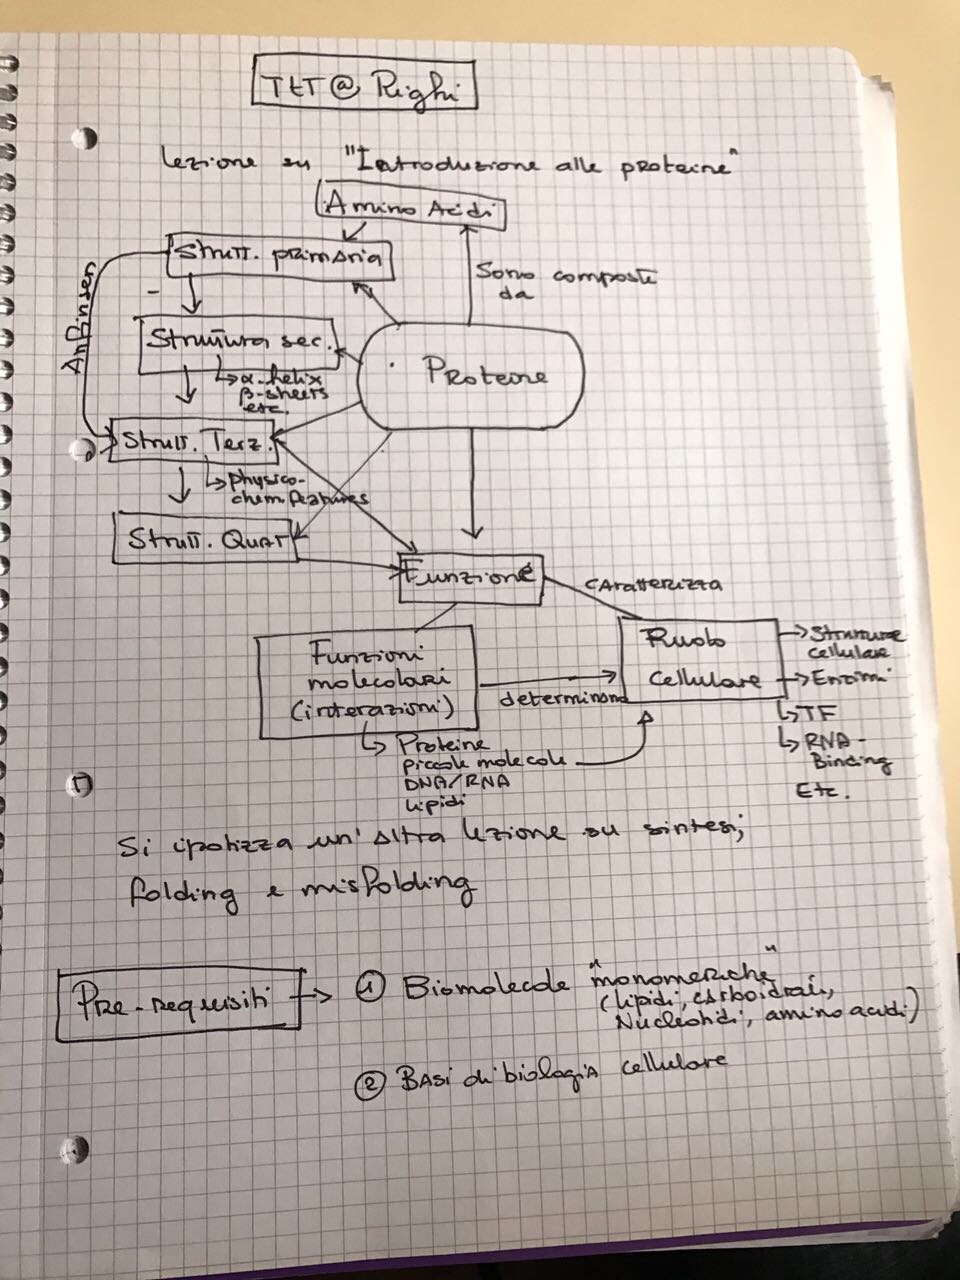 TtT @ Righi
lezione su "Introduzione alle proteine"
Amino Acidi
Strutt. primaria
Sono composte
da
Anfinsen
Struttura sec.
α-helix
β-sheets
etc.
Proteine
Strutt. Terz.
physico-
chem. features
Strutt. Quat
Funzione
caratterizza
Funzioni
molecolari
(interazioni)
determinano
Ruolo
cellulare
Strutture
cellulare
Enzimi
TF
RNA-
Binding
Etc.
Proteine
piccole molecole
DNA/RNA
Lipidi
Si ipotizza un'altra lezione su sintesi,
folding e misfolding
Pre-requisiti
① Biomolecole "monomeriche"
(lipidi, carboidrati,
Nucleotidi, amino acidi)
② Basi di biologia cellulare